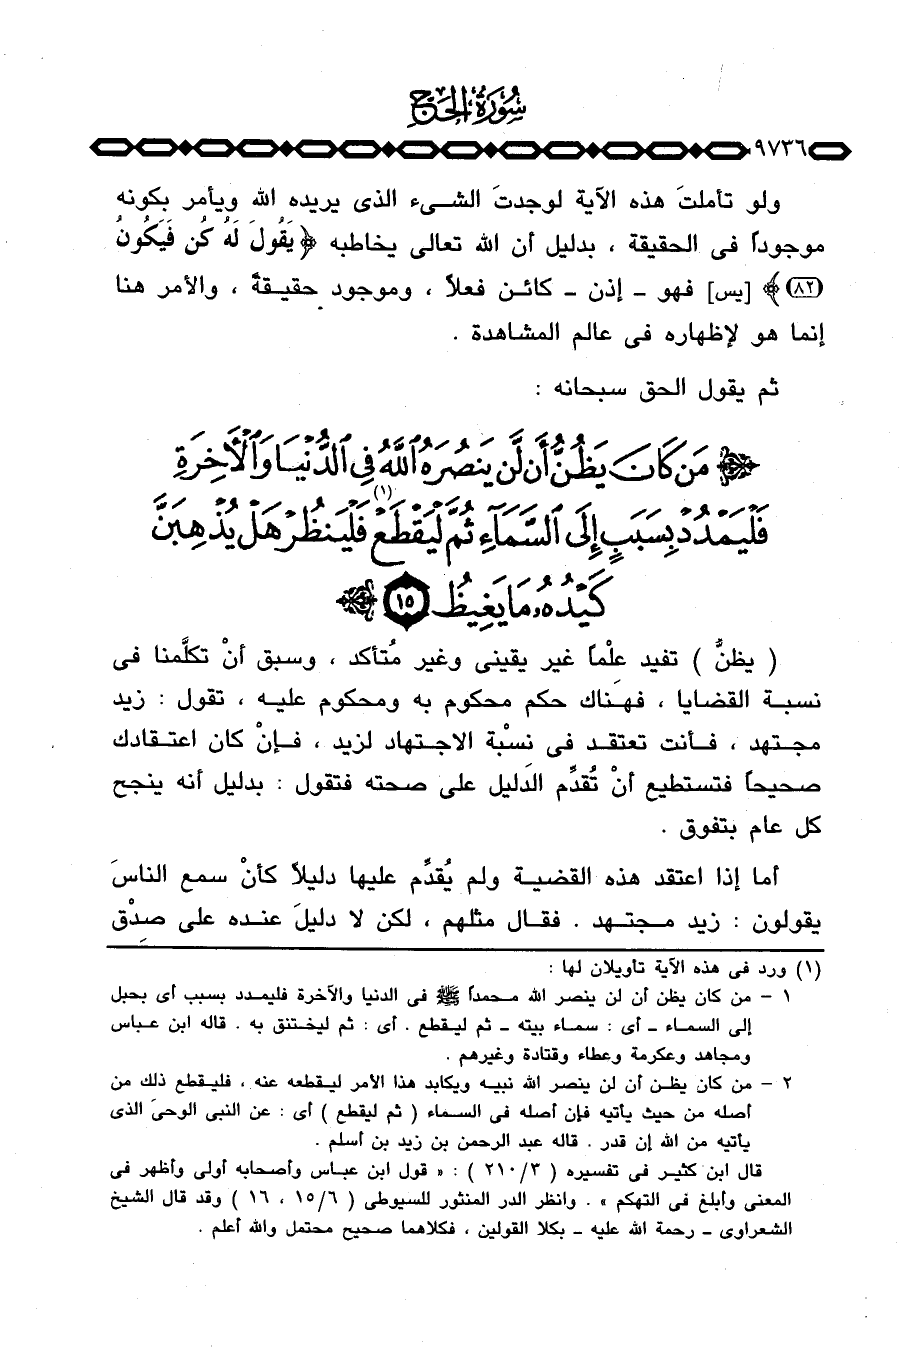 سورة الحج
٩٧٣٦
ولو تأملتَ هذه الآية لوجدتَ الشىء الذى يريده الله ويأمر بكونه
موجوداً فى الحقيقة ، بدليل أن الله تعالى يخاطبه ﴿ يَقُولَ لَهُ كُن فَيَكُونُ
(٨٢) ﴾ [يس] فهو ـ إذن ـ كائن فعلاً ، وموجود حقيقةً ، والأمر هنا
إنما هو لإظهاره فى عالم المشاهدة .
ثم يقول الحق سبحانه :
﴿ مَن كَانَ يَظُنُّ أَن لَّن يَنصُرَهُ ٱللَّهُ فِى ٱلدُّنْيَا وَٱلْأَخِرَةِ
فَلْيَمْدُدْ بِسَبَبٍ إِلَى ٱلسَّمَآءِ ثُمَّ لْيَقْطَعْ (١) فَلْيَنظُرْ هَلْ يُذْهِبَنَّ
كَيْدُهُۥ مَا يَغِيظُ (١٥) ﴾
( يظنُّ ) تفيد علْماً غير يقينى وغير مُتأكد ، وسبق أنْ تكلَّمنا فى
نسبة القضايا ، فهناك حكم محكوم به ومحكوم عليه ، تقول : زيد
مجتهد ، فأنت تعتقد فى نسْبة الاجتهاد لزيد ، فإنْ كان اعتقادك
صحيحاً فتستطيع أنْ تُقدِّم الدليل على صحته فتقول : بدليل أنه ينجح
كل عام بتفوق .
أما إذا اعتقد هذه القضية ولم يُقدِّم عليها دليلاً كأنْ سمع الناسَ
يقولون : زيد مجتهد . فقال مثلهم ، لكن لا دليلَ عنده على صدْق
(١) ورد فى هذه الآية تأويلان لها :
١ - من كان يظن أن لن ينصر الله محمداً ﷺ فى الدنيا والآخرة فليمدد بسبب أى بحبل
إلى السماء ـ أى : سماء بيته ـ ثم ليقطع . أى : ثم ليختنق به . قاله ابن عباس
ومجاهد وعكرمة وعطاء وقتادة وغيرهم .
٢ - من كان يظن أن لن ينصر الله نبيه ويكابد هذا الأمر ليقطعه عنه ، فليقطع ذلك من
أصله من حيث يأتيه فإن أصله فى السماء ( ثم ليقطع ) أى : عن النبى الوحى الذى
يأتيه من الله إن قدر . قاله عبد الرحمن بن زيد بن أسلم .
قال ابن كثير فى تفسيره ( ٢١٠/٣ ) : « قول ابن عباس وأصحابه أولى وأظهر فى
المعنى وأبلغ فى التهكم » . وانظر الدر المنثور للسيوطى ( ١٥/٦ ، ١٦ ) وقد قال الشيخ
الشعراوى ـ رحمة الله عليه ـ بكلا القولين ، فكلاهما صحيح محتمل والله أعلم .